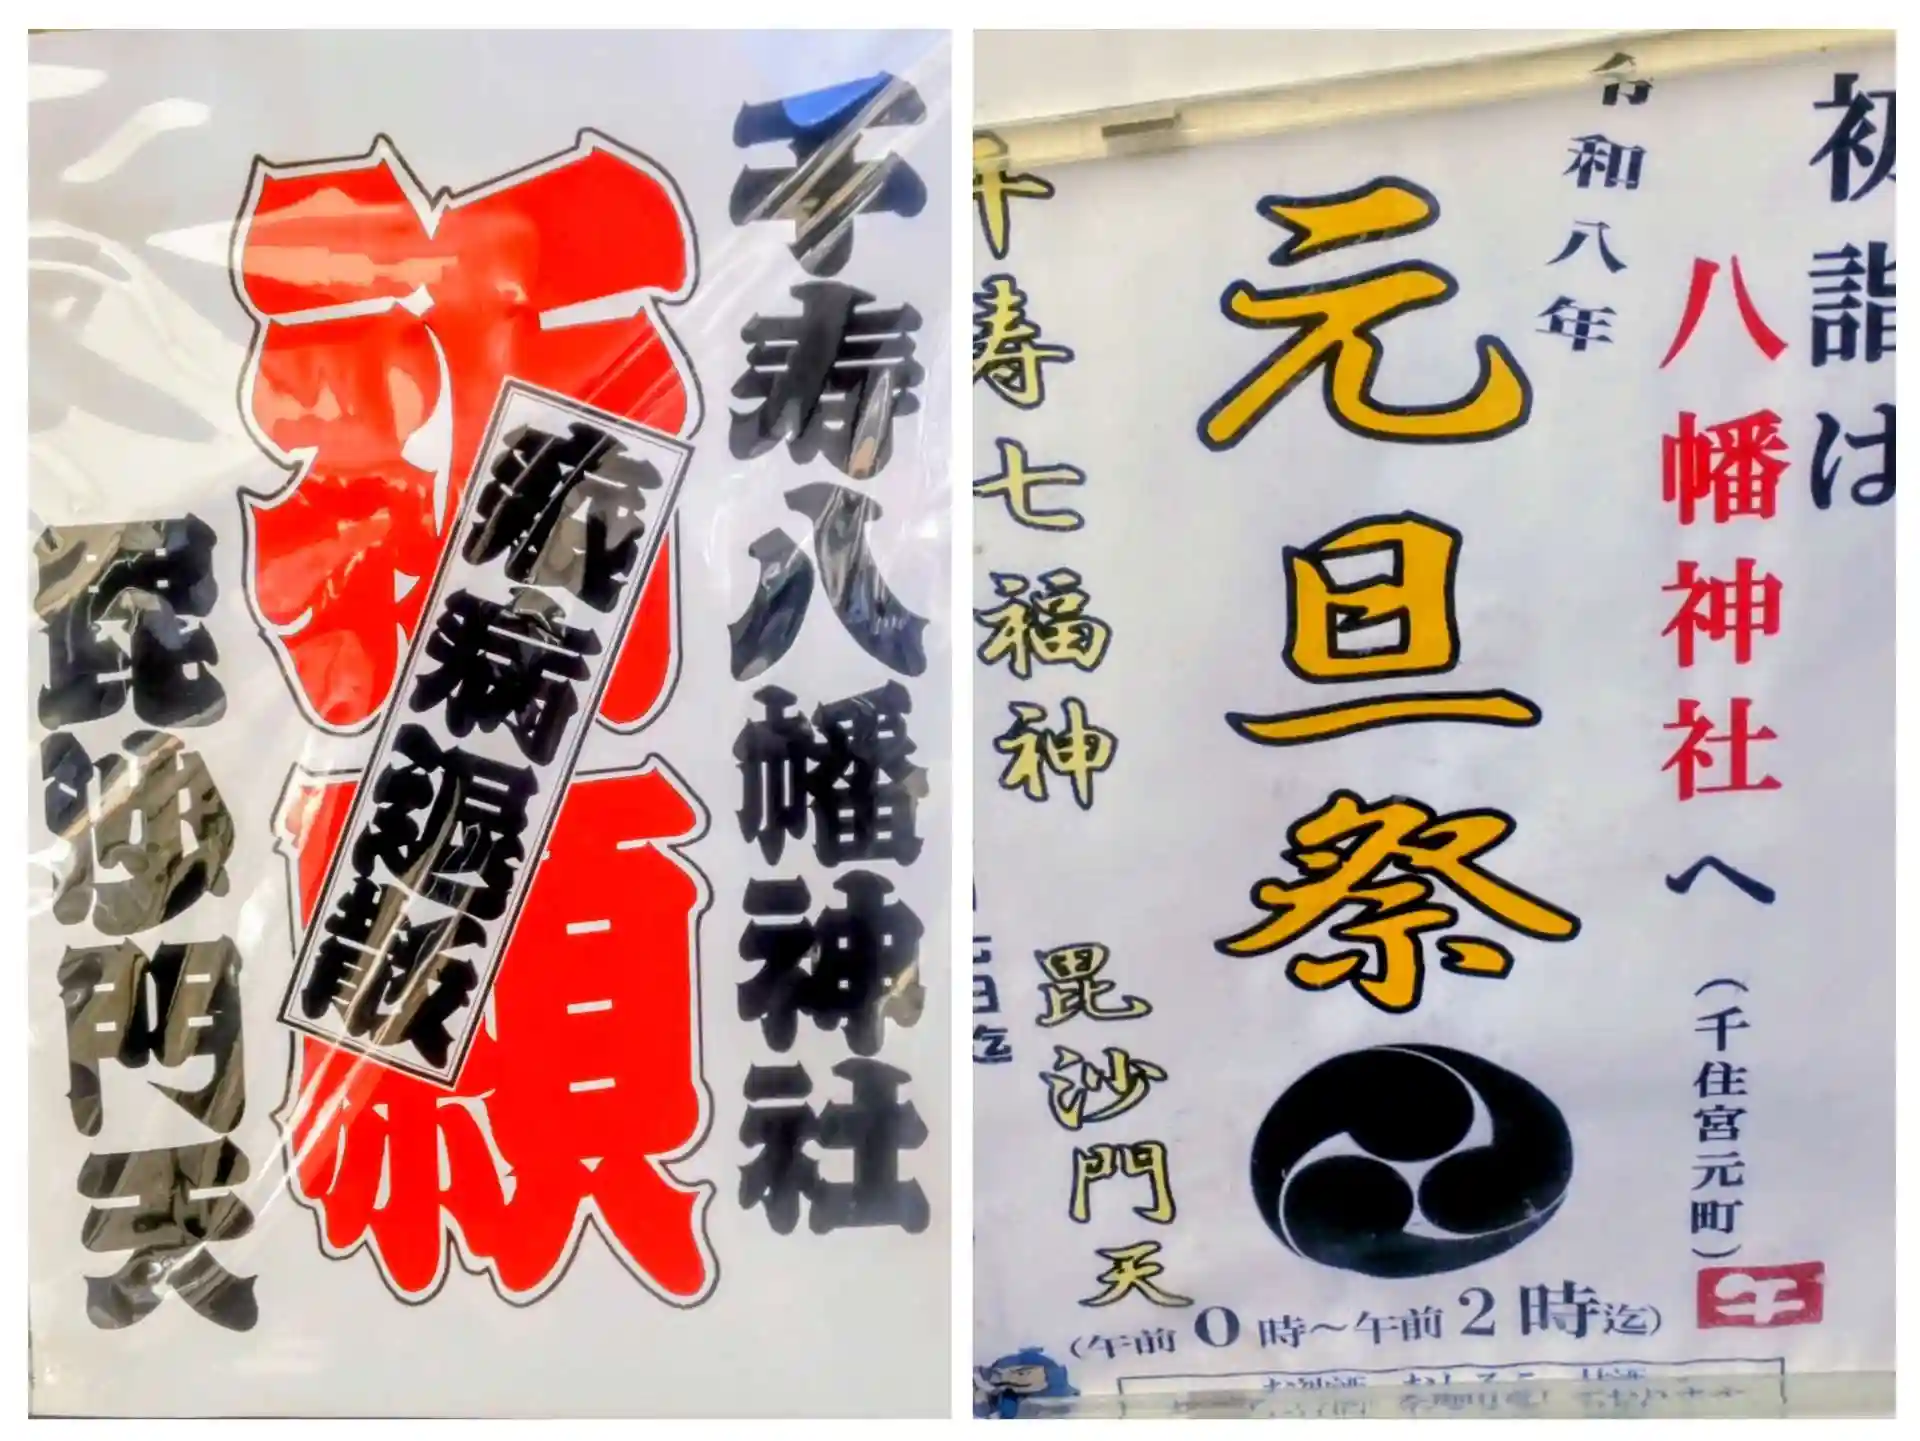 千寿八幡神社
祈願
疫病退散
毘沙門天
初詣は
八幡神社へ
(千住宮元町)
午
令和八年
元旦祭
千寿七福神
毘沙門天
(午前0時～午前2時迄)